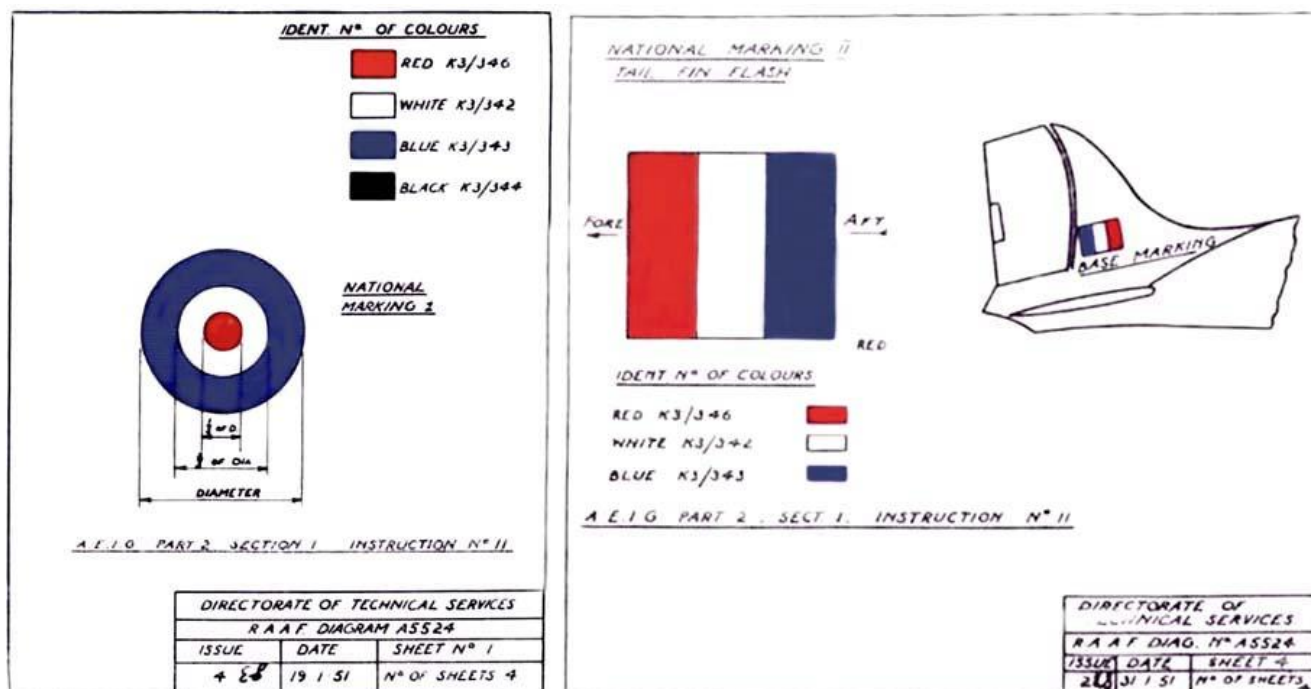 IDENT Nº OF COLOURS
RED K3/346
WHITE K3/342
BLUE K3/343
BLACK K3/344
NATIONAL
MARKING 1
OF D
OF DIA
DIAMETER
A.E.I.G PART 2 SECTION 1 INSTRUCTION Nº 11
DIRECTORATE OF TECHNICAL SERVICES
R A A F DIAGRAM A5524
ISSUE DATE SHEET Nº 1
4 19 1 51 Nº OF SHEETS 4
NATIONAL MARKING II
TAIL FIN FLASH
FORE
AFT
BASE MARKING
RED
IDENT Nº OF COLOURS
RED K3/346
WHITE K3/342
BLUE K3/343
A.E.I.G PART 2. SECT 1. INSTRUCTION Nº 11
DIRECTORATE OF
TECHNICAL SERVICES
R A A F DIAG. Nº A5524
ISSUE DATE SHEET 4
2 31 1 51 Nº OF SHEETS 4